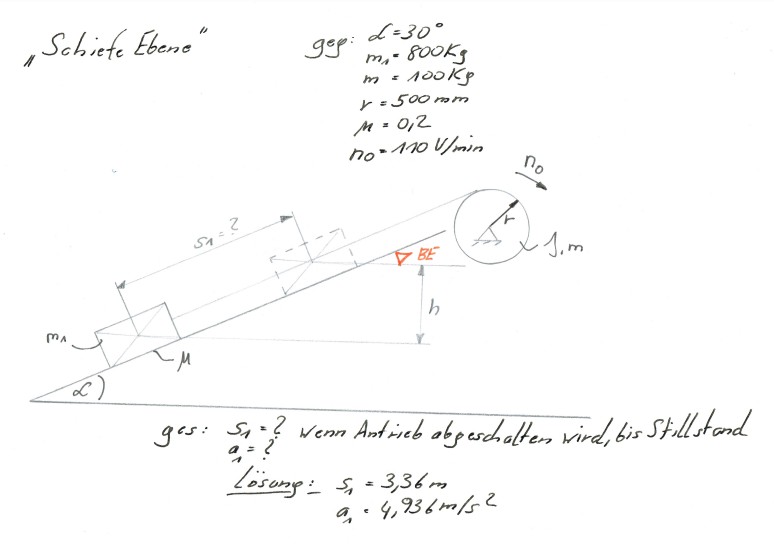 „Schiefe Ebene"
geg: α=30°
m₁= 800Kg
m = 100Kg
r = 500mm
μ = 0,2
n₀=110 U/min
n₀
r
J,m
s₁=?
BE
h
m₁
μ
α
ges: s₁=? wenn Antrieb abgeschalten wird, bis Stillstand
a₁=?
Lösung: s₁ = 3,36m
a₁ = 4,936m/s²